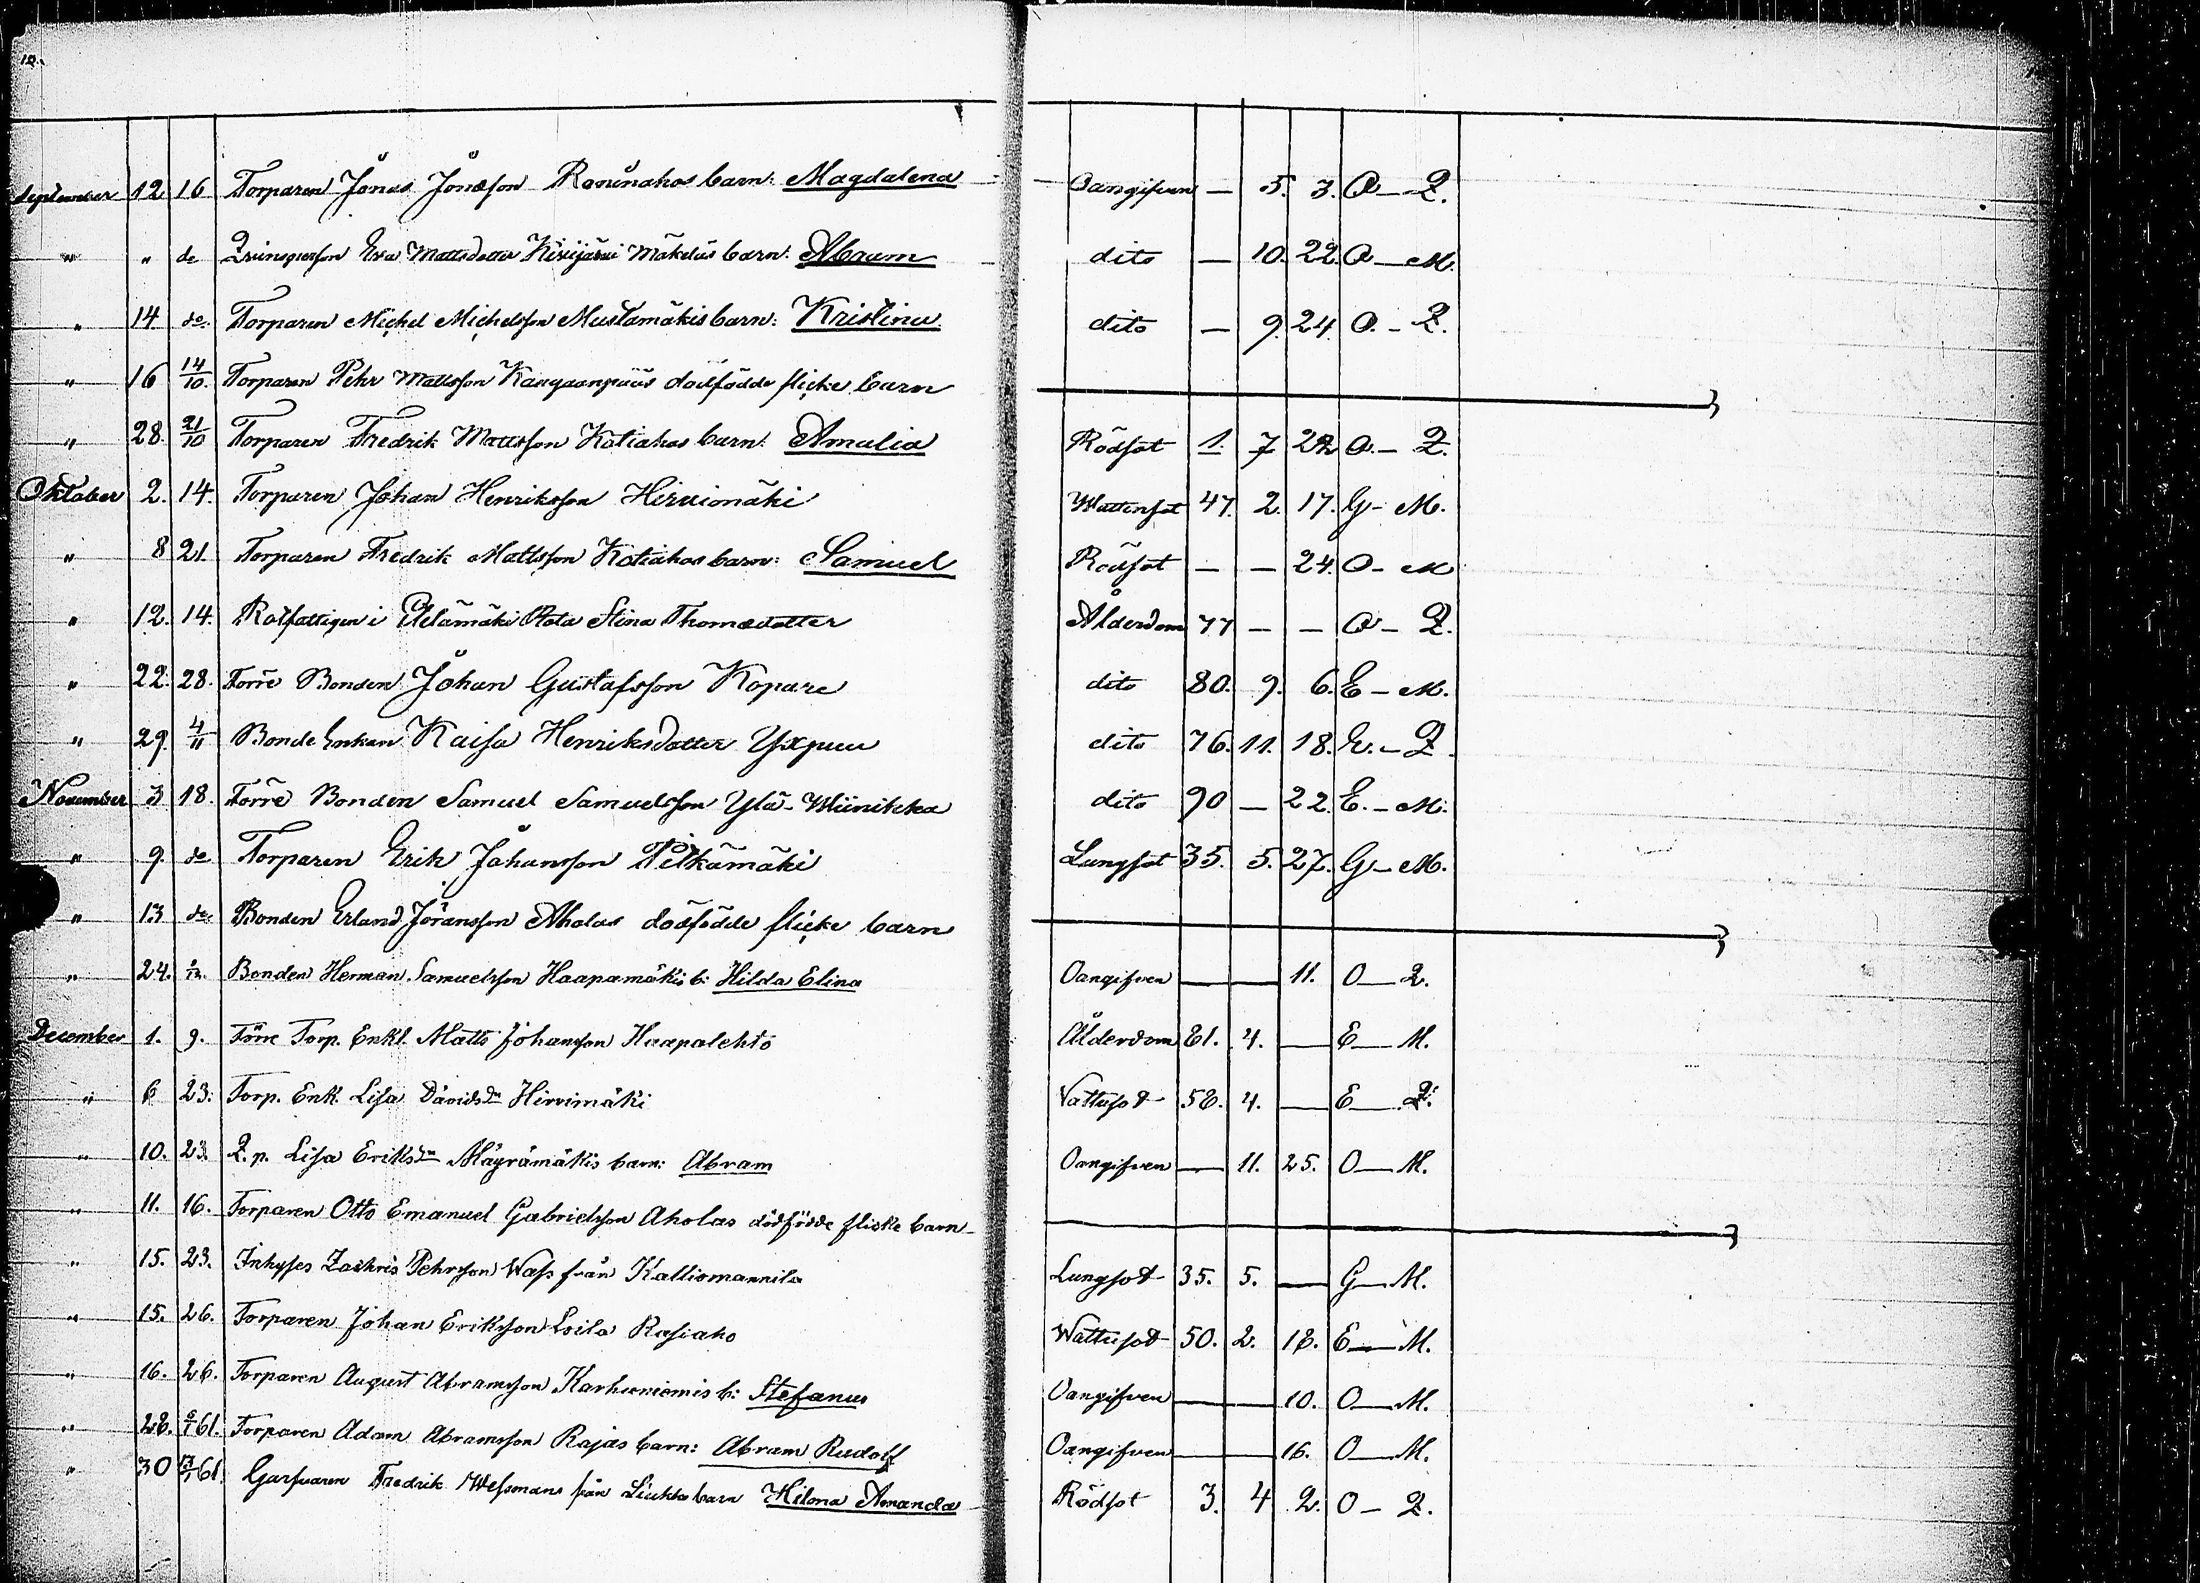 September 12 16 Torparen Jonas Jonasson Ronunahos barn: Magdalena Oangifven — 5. 3. O — Q.
" " do Qvinsperson Eva Mattsdotter Kivijärvi Mäkeläs barn: Abram dito — 10. 22. O — M.
" 14 do Torparen Michel Michelsson Mustamäkis barn: Kristina dito — 9. 24. O. — Q.
" 16 14/10. Torparen Pehr Mattsson dödfödde flicke barn
" 28. 21/10 Torparen Fredrik Mattsson Kotiahos barn: Amalia Rödsot 1. 7 22 O. — Q.
Oktober 2. 14. Torparen Johan Henriksson Hirvionäki Wattensot 47. 2. 17. G — M.
" 8 21. Torparen Fredrik Mattsson Kotiahos barn: Samuel Rödsot — — 24. O — M
" 12. 14. Rotfattigen i Stina Thomasdotter Ålderdom 77 — — O — Q.
" 22. 28. Förre Bonden Johan Gustafsson Kopare dito 80. 9. 6. E — M.
" 29. 4/11 Bonde Enkan Kaisa Henriksdotter Yxpuu dito 76. 11. 18. E. — Q.
November 3 18. Förre Bonden Samuel Samuelsson Ylä-Wiinikka dito 90 — 22. E. — M.
" 9. do Torparen Erik Johansson Pitkämäki Lungsot 35. 5. 27. G — M.
" 13 do Bonden Erland Jöransson Aholas dödfödde flicke barn
" 24. Bonden Herman Samuelsson Haapamäkis b: Hilda Elina Oangifven — — 11. O — Q.
December 1. 9. Förre Torp. Enkl. Matts Johansson Haapalehto Ålderdom 81. 4. — E — M.
" 6 23. Torp. Enk. Lisa Davidsdr Hirvimäki Vattusot 58. 4. — E — Q.
" 10. 23. Q. p. Lisa Eriksdr Mäyrämäkis barn: Abram Oangifven — 11. 25. O — M.
" 11. 16. Torparen Otto Emanuel Gabrielsson Aholas dödfödde flicke barn
" 15. 23. Inhyses Zachris Pehrsson Wass från Kalliomannila Lungsot 35. 5. — G — M.
" 15. 26. Torparen Johan Eriksson Loila Rasiaho Wattusot 50. 2. 18. E — M.
" 16. 26. Torparen August Abramsson Karhuniemis b: Stefanus Oangifven — — 10. O — M.
" 28. 6/1 61. Torparen Adam Abramsson Rajas barn: Abram Rudolf Oangifven — — 16. O — M.
" 30 13/1 61. Garfvaren Fredrik Wessmans från barn Hilma Amanda Rödsot 3. 4 2. O — Q.